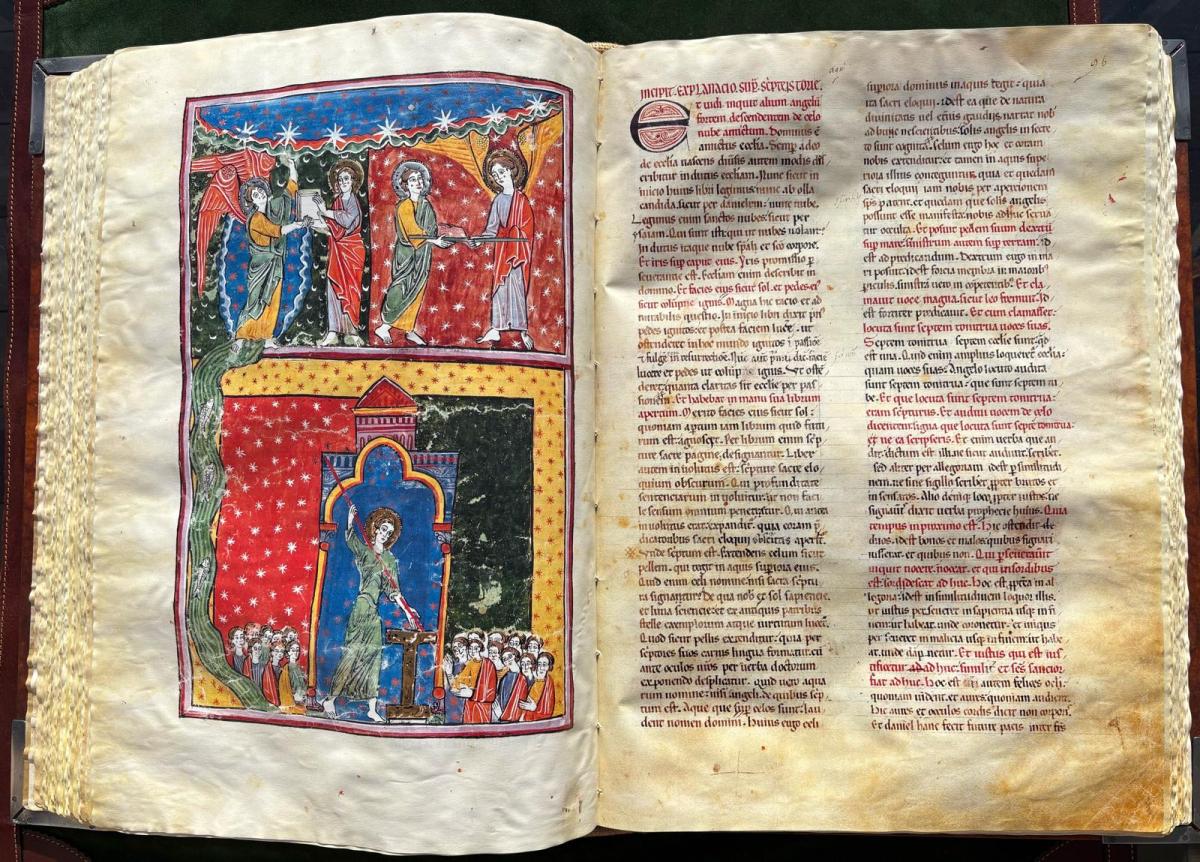 96
INCIPIT EXPLANACIO SUPRASCRIPTE STORIE
Et uidi inquit alium angelū
fortem. descendentem de celo
nube amictum. Dominus ē
amictus ecclia. Semp adeo
de ecclia nascens
cribitur indutus ecclam. Nunc sicut in
inicio huius libri legimus: nunc ab olla
candida. sicut per danielem: nunc nube.
Legimus enim sanctos nubes: sicut per
ysaiam. Qui sunt isti qui ut nubes uolant:
Indutus itaque nube spali et sco corpore.
Et iris sup caput eius. Yris promissio p
seuerantie est. Eccliam enim describit in
domino. Et facies eius sicut sol. et pedes ei
sicut colūpne ignis. Magna hic racio et ad
mirabilis questio. In inicio libri dixit
pedes ignitos: et postea faciem lucere. ut
ostenderet in hoc mundo ignitos
fulgere in resurrectione.
lucere et pedes ut colūpne ignis. Vt oste
deret quanta claritas sit ecclie per pas
sionem. Et habebat in manu sua librum
apertum. Merito facies eius sicut sol:
quoniam apertum iam librum quid futu
rum est: agnoscit. Per librum enim scrip
ture sacre pagine. designantur. Liber
autem inuolutus est: scripture sacre elo
quium obscurum. Qui profunditate
sentenciarum inuoluitur: ut non faci
le sensum omnium penetretur.
inuolutus erat: expandit. quia coram
dicatoribus sacri eloquii obscuritas aperit.
Vnde scriptum est. Extendens celum sicut
pellem. qui tegit in aquis superiora eius.
Quid enim celi nomine: nisi sacra scriptu
ra signatur: De qua nob et sol sapiencie.
et luna sciencie: et ex antiquis patribus
stelle exemplorum atque uirtutum lucet.
Quod sicut pellis extenditur: quia per
scriptores suos carnis lingua formatum
ante oculos nros per uerba doctorum
exponendo desplicatur. Quid uero aqua
rum nomine: nisi angeli. de quibus scrip
tum est. Aque que sup celos sunt: lau
dent nomen domini. Huius ergo celi
superiora dominus in aquis tegit: quia
ita sacri eloquii. idest ea que de natura
diuinitatis uel eternis gaudiis narrat nob
adhuc nescientibus. solis angelis in secre
to sunt cognita. Celum ergo hoc et coram
nobis extenditur: et tamen in aquis supe
riora illius conteguntur. quia et quedam
sacri eloquii iam nobis per apercionem
sps patent. et quedam que solis angelis
possunt esse manifesta: nobis adhuc serua
tur occulta. Et posuit pedem suum dextrū
sup mare. sinistrum autem sup terram. id
est ad predicandum. Dextrum ergo in ma
ri posuit: idest forcia membra in maiorib
periculis. sinistra uero in oportunis. Et cla
mauit uoce magna. sicut leo fremuit. Id
est fortiter predicauit. Et cum clamasset:
locuta sunt septem tonitrua uoces suas.
Septem tonitrua septem ecclie sunt: qd
est una. Quid enim amplius loqueret ecclia:
quam uoces suas: Angelo locuto audita
sunt septem tonitrua: que sunt septem tu
be. Et que locuta sunt septem tonitrua:
eram scripturus. Et audiui uocem de celo
dicentem. signa que locuta sunt septē tonitrua:
et ne ea scripseris. Et enim uerba que au
diit. dictum est illi: ne sicut audiuit scriberet.
sed aliter per allegoriam. idest p similitudi
nem. ne sine sigillo scriberet. propter brutos et
insensatos. Alio denique loco propter iustos: ne
signauerit dixit uerba prophecie huius. Quia
tempus in proximo est. Hic ostendit de
duos. idest bonos et malos: quibus signari
iusserat. et quibus non. Qui pseuerauerit
inquit nocere. noceat. et qui in sordibus
est: sordidescat adhuc. Hoc est. ppterea in al
legoria: idest in similitudinem loquor illis.
ut iustus perseueret in sapiencia usque in fi
nem: ut habeat. unde coronetur: et iniquus
perseueret in malicia usque in finem: ut habe
at. unde dampnetur. Et iustus qui est: ius
tificetur adhuc. similiter et scs sanctior
fiat adhuc. Hoc est. autem felices oculi:
quoniam uident. et aures: quoniam audiunt.
Hic aures et occulos cordis dicit non corporis.
Et daniel hanc fecit future pacis inter scs